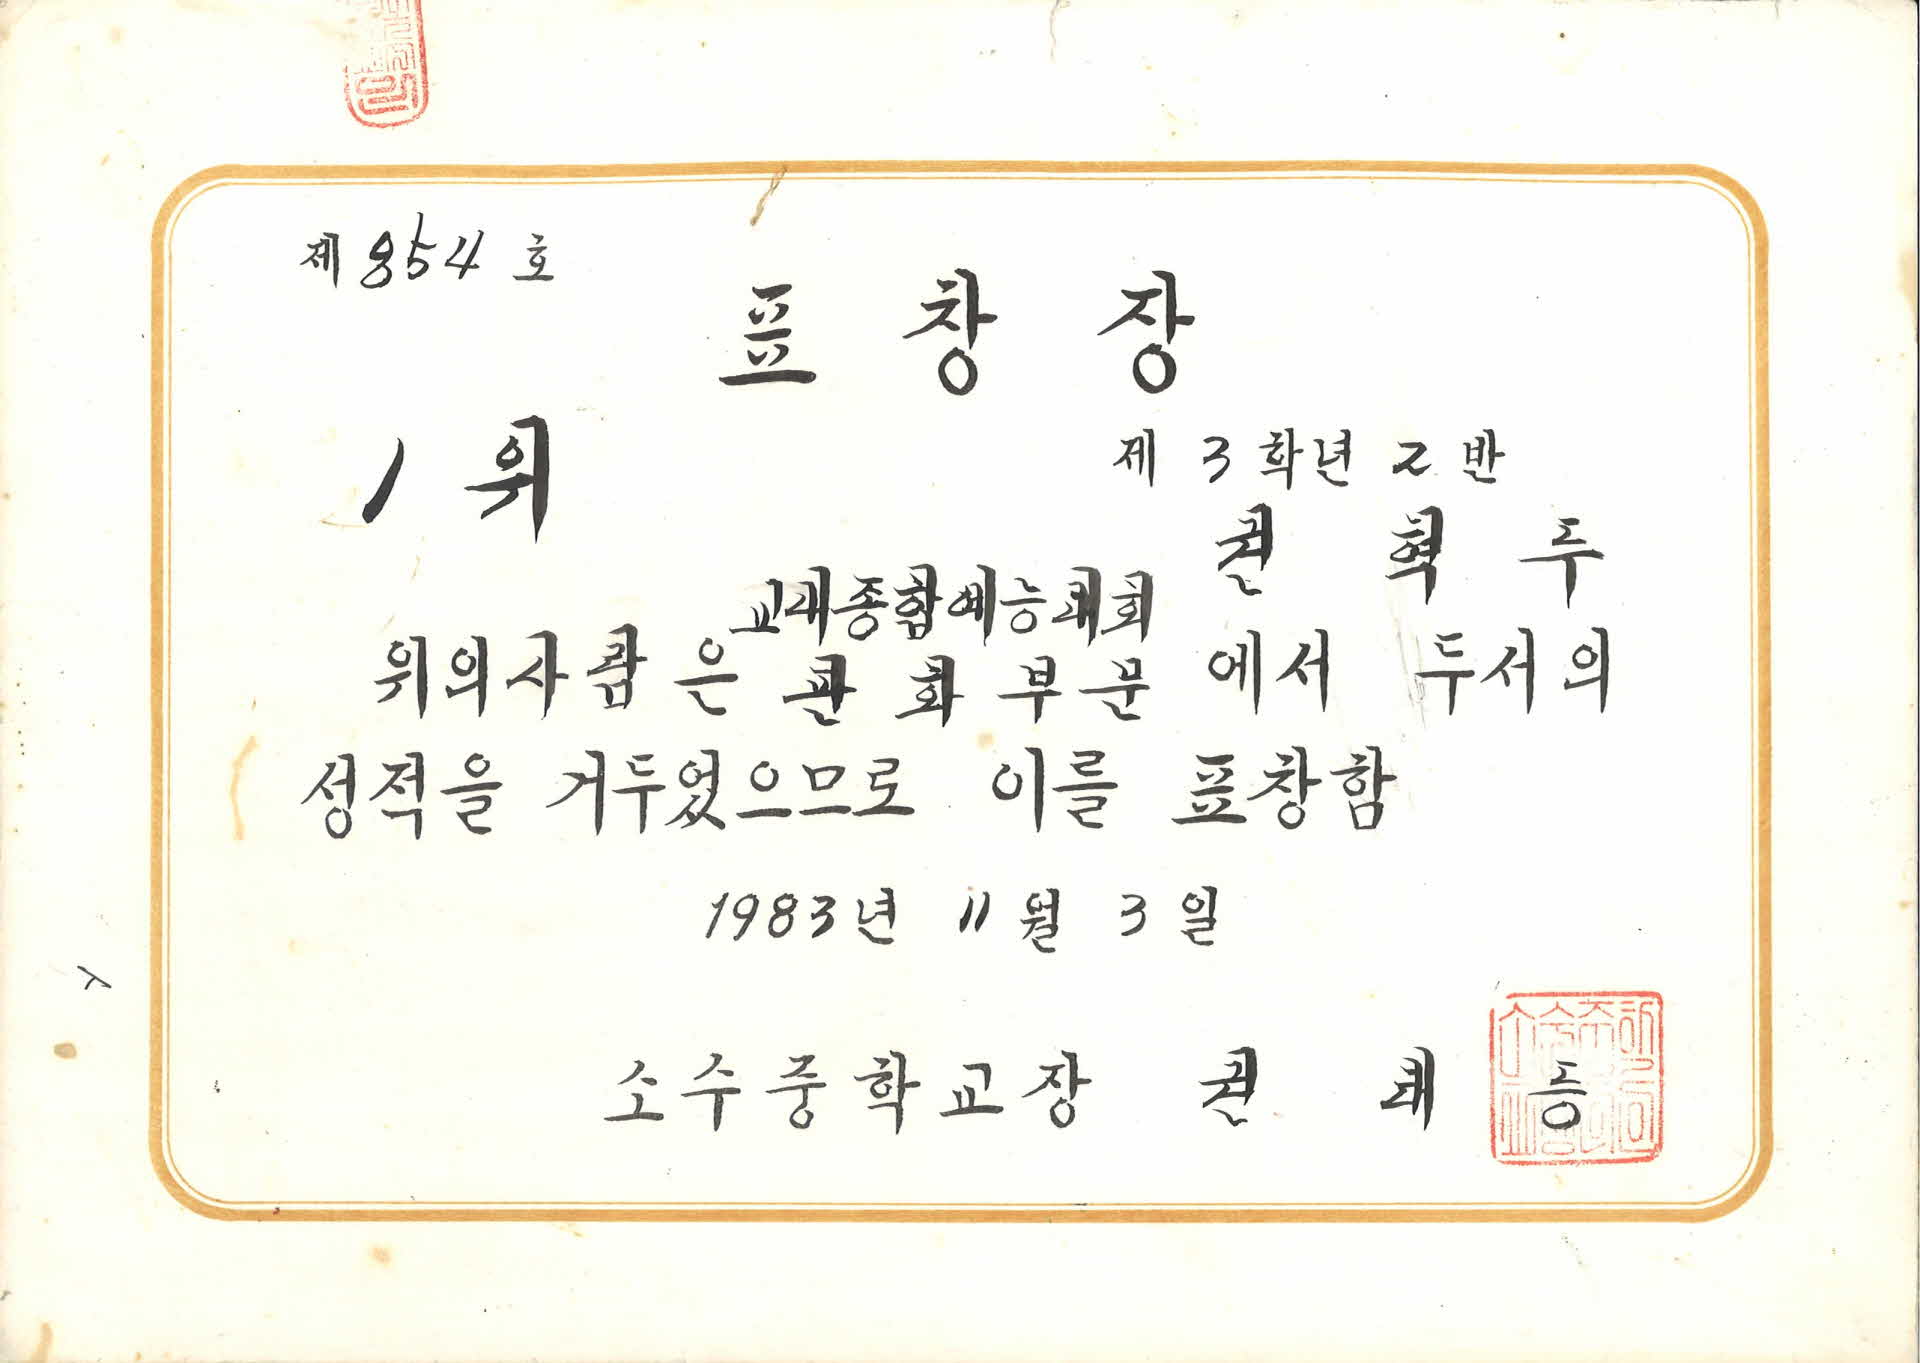 제 854 호
표 창 장
1 위
제 3 학년 2 반
권 혁 두
위의 사람은 교내종합예능대회 판화부문 에서 두서의
성적을 거두었으므로 이를 표창함
1983년 11월 3일
소수중학교장 권 태 등